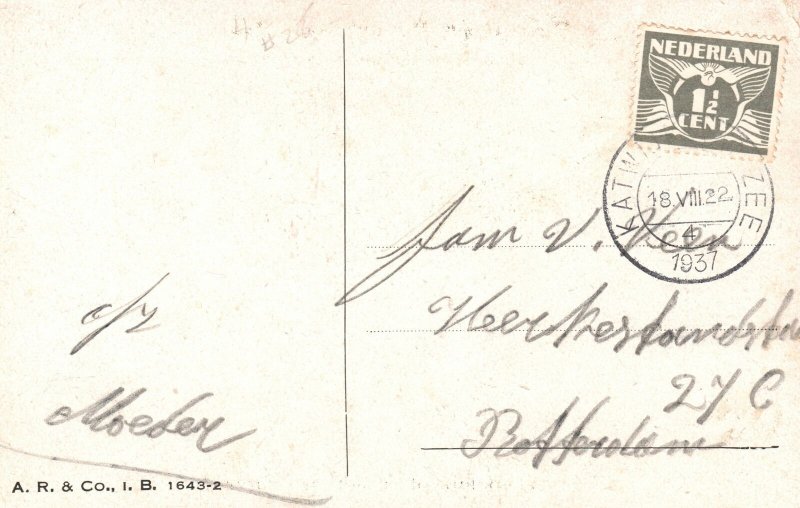 # 26
NEDERLAND
1½
CENT
KATWIJK ZEE
18.VIII.22
4
1937
Fam V. Veen
27 C
Rotterdam
Moeder
A. R. & Co., I. B. 1643-2